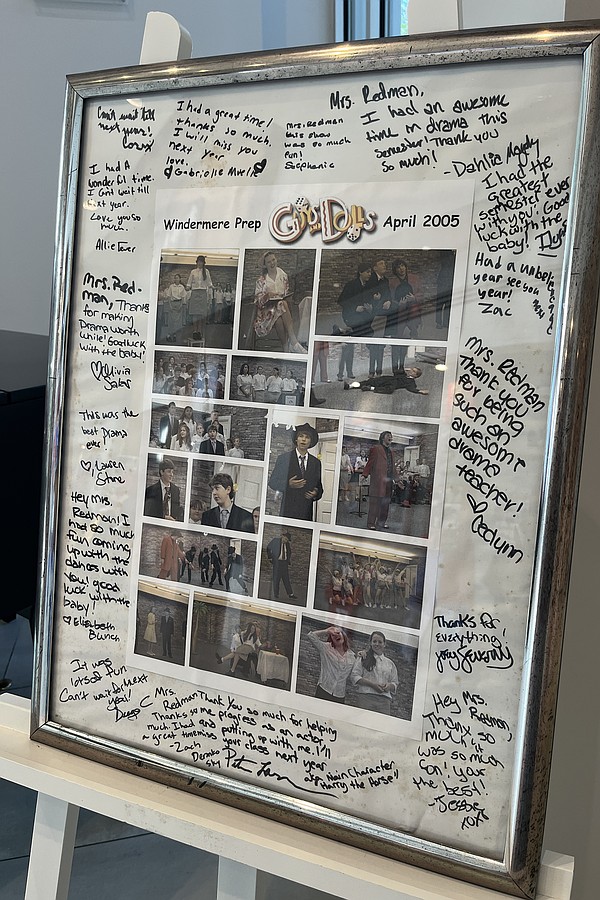 Can't wait till
next years!
I had a great time!
thanks so much.
I will miss you
next year
love,
Gabrielle
Mrs. Redman
this show
was so much
fun!
Stephanie
Mrs. Redman,
I had an awesome
time in drama this
semester! Thank you
so much!
-Dahlia
I had the
greatest
semester ever
with you! Good
luck with the
baby!
I had a
wonderful time.
I can't wait till
next year.
Love you so
much.
Allie
Had a
year see you
year!
Zac
Windermere Prep Guys & Dolls April 2005
Mrs. Red-
man, Thanks
for making
Drama worth
while! Good luck
with the baby!
Olivia
Salas
Mrs. Redman
Thank you
for being
such an
awesome
drama
teacher!
This was the
best Drama
ever!
Lauren
Hey Mrs.
Redman! I
had so much
fun coming
up with the
dances with
you! good
luck with the
baby!
Elizabeth
Bunch
Thanks for
everything,
It was
lots of fun
Can't wait for next
year!
Mrs.
Redman Thank You so much for helping
Thanks so me progress as an actor
much. I had and putting up with me. I'll
a great time miss your class next year
-Zach
aka Main Character
"Harry the Horse"
Hey Mrs.
Redman,
Thanx so
much it
was so much
fun! your
the best!
-Jesse
xox